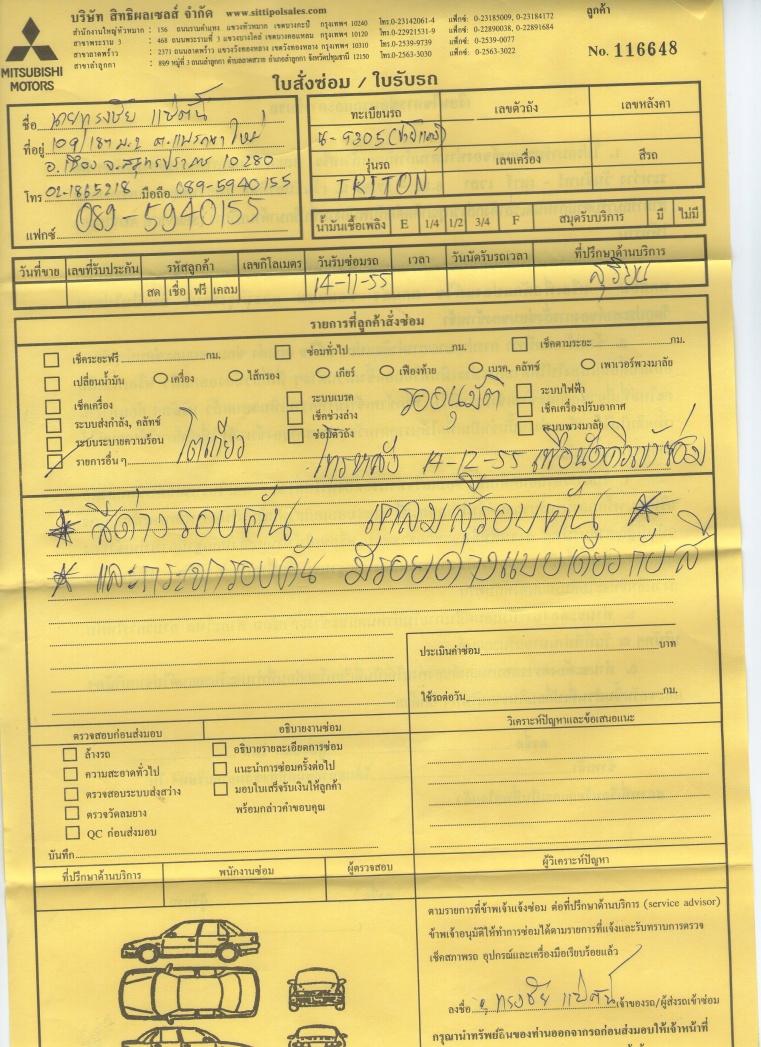 บริษัท สิทธิผลเซลส์ จำกัด www.sittipolsales.com
ลูกค้า
สำนักงานใหญ่หัวหมาก : 156 ถนนรามคำแหง แขวงหัวหมาก เขตบางกะปิ กรุงเทพฯ 10240 โทร.0-23142061-4 แฟ็กซ์: 0-23185009, 0-23184172
สาขาพระราม 3 : 468 ถนนพระรามที่ 3 แขวงบางโคล่ เขตบางคอแหลม กรุงเทพฯ 10120 โทร.0-22921531-9 แฟ็กซ์: 0-22890038, 0-22891684
สาขาลาดพร้าว : 2371 ถนนลาดพร้าว แขวงวังทองหลาง เขตวังทองหลาง กรุงเทพฯ 10310 โทร.0-2539-9739 แฟ็กซ์: 0-2539-0077
สาขาลำลูกกา : 89/9 หมู่ที่ 3 ถนนลำลูกกา ตำบลลาดสวาย อำเภอลำลูกกา จังหวัดปทุมธานี 12150 โทร.0-2563-3030 แฟ็กซ์: 0-2563-3022
MITSUBISHI
MOTORS
No. 116648
ใบสั่งซ่อม / ใบรับรถ
ชื่อ นายทรงชัย แซ่ตั้น
ที่อยู่ 109/187 ม.2 ต.แพรกษาใหม่
อ.เมือง จ.สมุทรปราการ 10280
โทร 02-1865218 มือถือ 089-5940155
089-5940155
แฟกซ์
ทะเบียนรถ เลขตัวถัง เลขหลังคา
9305 (ป้ายแดง)
รุ่นรถ เลขเครื่อง สีรถ
TRITON
น้ำมันเชื้อเพลิง E 1/4 1/2 3/4 F สมุดรับบริการ มี ไม่มี
วันที่ขาย เลขที่รับประกัน รหัสลูกค้า เลขกิโลเมตร วันรับซ่อมรถ เวลา วันนัดรับรถเวลา ที่ปรึกษาด้านบริการ
สด เชื่อ ฟรี เคลม 14-11-55 สุริยน
รายการที่ลูกค้าสั่งซ่อม
เช็คระยะฟรี กม. ซ่อมทั่วไป กม. เช็คตามระยะ กม.
เปลี่ยนน้ำมัน เครื่อง ไส้กรอง เกียร์ เฟืองท้าย เบรค, คลัทช์ เพาเวอร์พวงมาลัย
เช็คเครื่อง ระบบเบรค ระบบไฟฟ้า
รออนุมัติ
ระบบส่งกำลัง, คลัทช์ เช็คช่วงล่าง เช็คเครื่องปรับอากาศ
ระบบระบายความร้อน ซ่อมตัวถัง ระบบพวงมาลัย
โตเกียว
รายการอื่น ๆ โทรหลัง 14-12-55 เพื่อนัดคิวเข้าซ่อม
* สีด่างรอบคัน เคลมสีรอบคัน *
* และกระจกรอบคัน มีรอยด่างแบบเดียวกับสี
ประเมินค่าซ่อม บาท
ใช้รถต่อวัน กม.
ตรวจสอบก่อนส่งมอบ อธิบายงานซ่อม วิเคราะห์ปัญหาและข้อเสนอแนะ
ล้างรถ อธิบายรายละเอียดการซ่อม
ความสะอาดทั่วไป แนะนำการซ่อมครั้งต่อไป
ตรวจสอบระบบส่งสว่าง มอบใบเสร็จรับเงินให้ลูกค้า
ตรวจวัดลมยาง พร้อมกล่าวคำขอบคุณ
QC ก่อนส่งมอบ
บันทึก
ที่ปรึกษาด้านบริการ พนักงานซ่อม ผู้ตรวจสอบ ผู้วิเคราะห์ปัญหา
ตามรายการที่ข้าพเจ้าแจ้งซ่อม ต่อที่ปรึกษาด้านบริการ (service advisor)
ข้าพเจ้าอนุมัติให้ทำการซ่อมได้ตามรายการที่แจ้งและรับทราบการตรวจ
เช็คสภาพรถ อุปกรณ์และเครื่องมือเรียบร้อยแล้ว
ลงชื่อ ทรงชัย แซ่ตั้น เจ้าของรถ/ผู้ส่งรถเข้าซ่อม
กรุณานำทรัพย์สินของท่านออกจากรถก่อนส่งมอบให้เจ้าหน้าที่